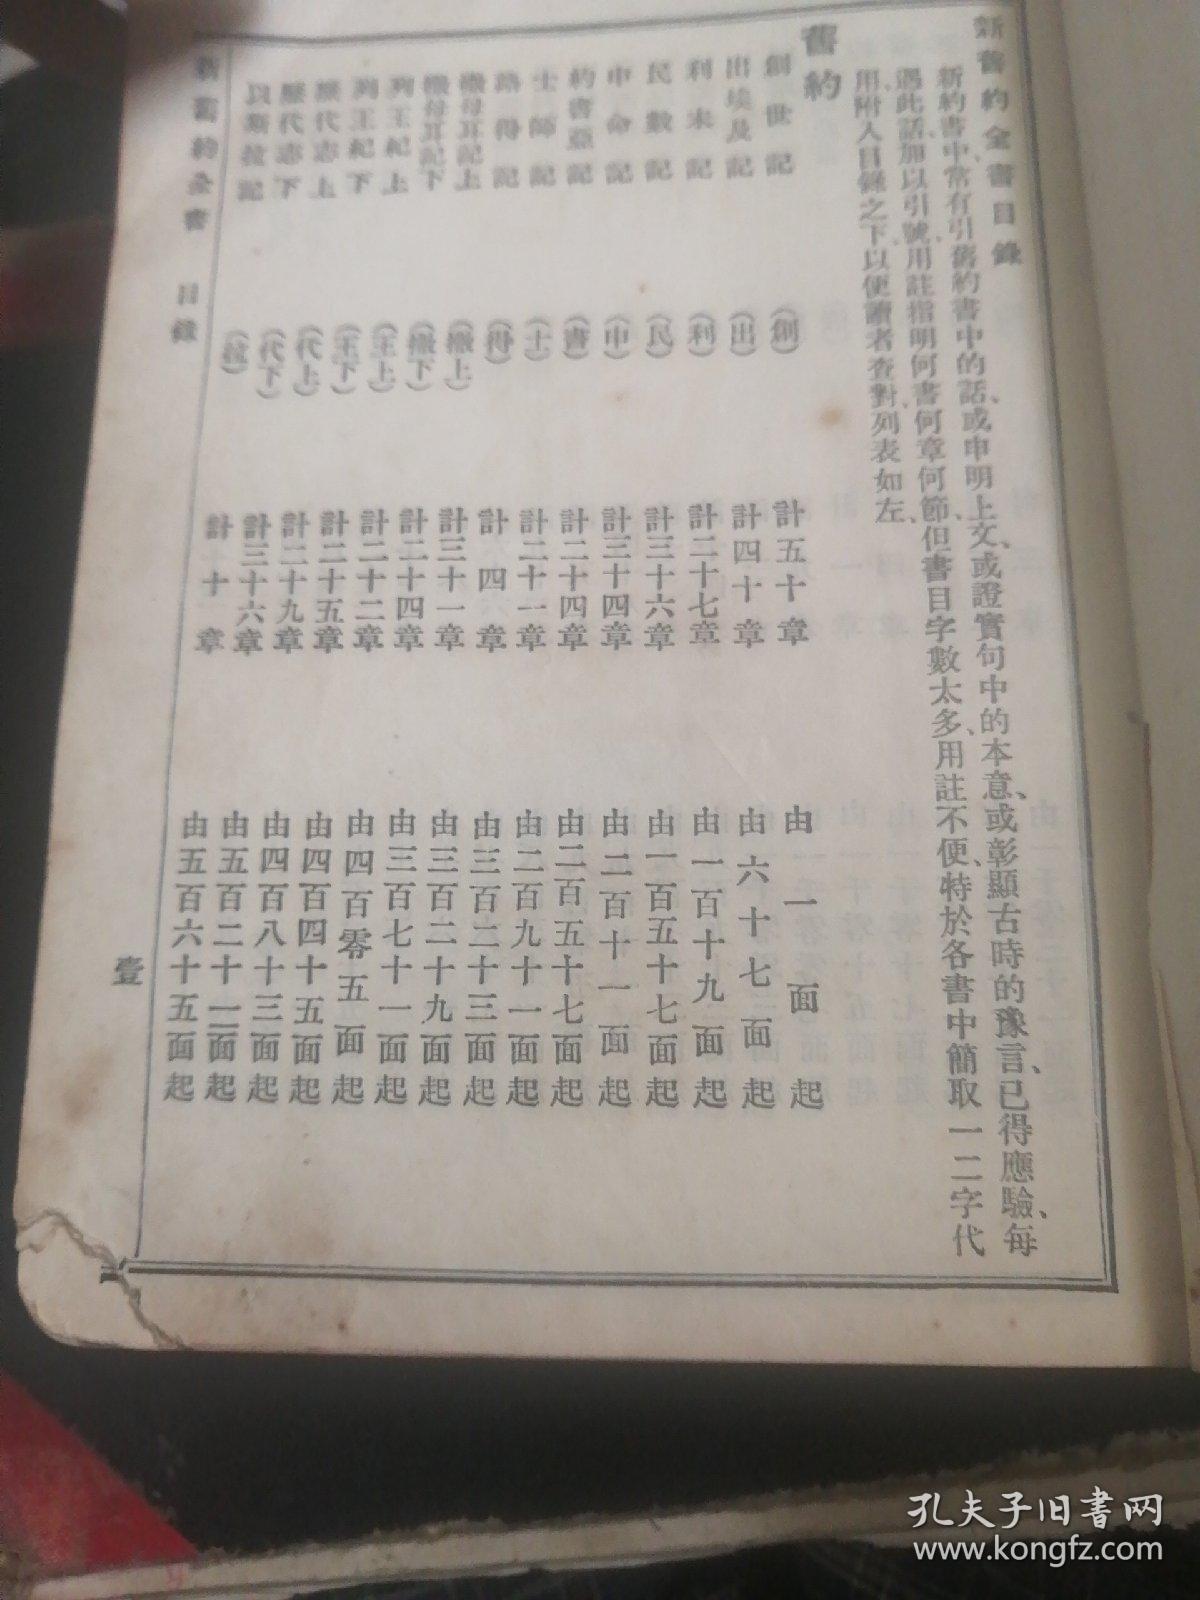 新舊約全書目錄
新約書中、常有引舊約書中的話、或申明上文、或證實句中的本意、或彰顯古時的豫言、已得應驗、每
遇此話、加以引號、用註指明何書何章何節、但書目字數太多、用註不便、特於各書中簡取一二字代
用、附入目錄之下、以便讀者查對、列表如左、
舊約
創世記 (創) 計五十章 由一面起
出埃及記 (出) 計四十章 由六十七面起
利未記 (利) 計二十七章 由一百十九面起
民數記 (民) 計三十六章 由一百五十七面起
申命記 (申) 計三十四章 由二百十一面起
約書亞記 (書) 計二十四章 由二百五十七面起
士師記 (士) 計二十一章 由二百九十一面起
路得記 (得) 計四章 由三百二十三面起
撒母耳記上 (撒上) 計三十一章 由三百二十九面起
撒母耳記下 (撒下) 計二十四章 由三百七十一面起
列王紀上 (王上) 計二十二章 由四百零五面起
列王紀下 (王下) 計二十五章 由四百四十五面起
歷代志上 (代上) 計二十九章 由四百八十三面起
歷代志下 (代下) 計三十六章 由五百二十一面起
以斯拉記 (拉) 計十章 由五百六十五面起
新舊約全書 目錄 壹
孔夫子旧书网
www.kongfz.com